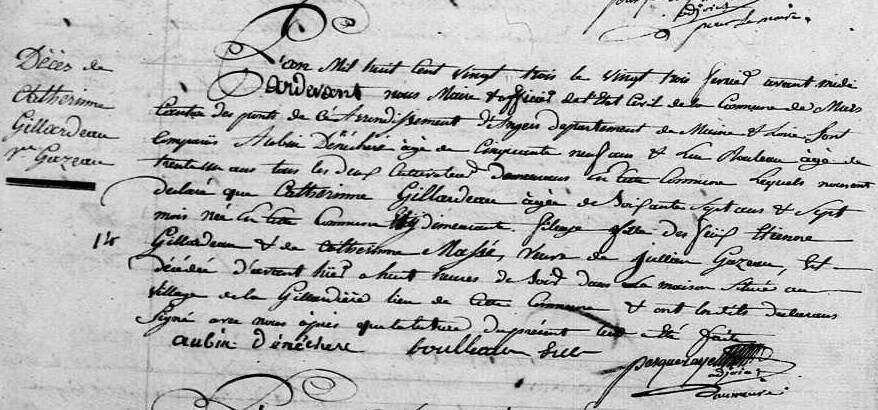 adjoint
pour le maire
Décès de
Catherinne
Gillardeau
Ve Gazeau
14
L'an Mil huit Cent vingt trois le vingt trois fevrier avant midi
Pardevant nous Maire & officier de l'Etat Civil de la Commune de Murs
Canton des ponts de cé Arrondissement d'Angers departement de Maine & Loire sont
comparus Aubin Dénéchère âgé de Cinquante neuf ans & Luc Bouleau âgé de
trente ans tous les deux Cultivateurs demeurans en cette Commune lesquels nous ont
declaré que Catherinne Gillardeau âgée de Soixante Sept ans & Sept
mois née en cette Commune & y demeurant filage fille des feux Etienne
Gillardeau & de Catherinne Massé, veuve de Jullien Gazeau, est
décédée d'avant hier a huit heures du soir dans la maison située au
village de la Gillardière lieu de cette Commune & ont lesdits declarans
Signé avec nous après que lecture du présent leur a été faite
aubin dénéchere boulleau Luc
pasqueraye
adjoint